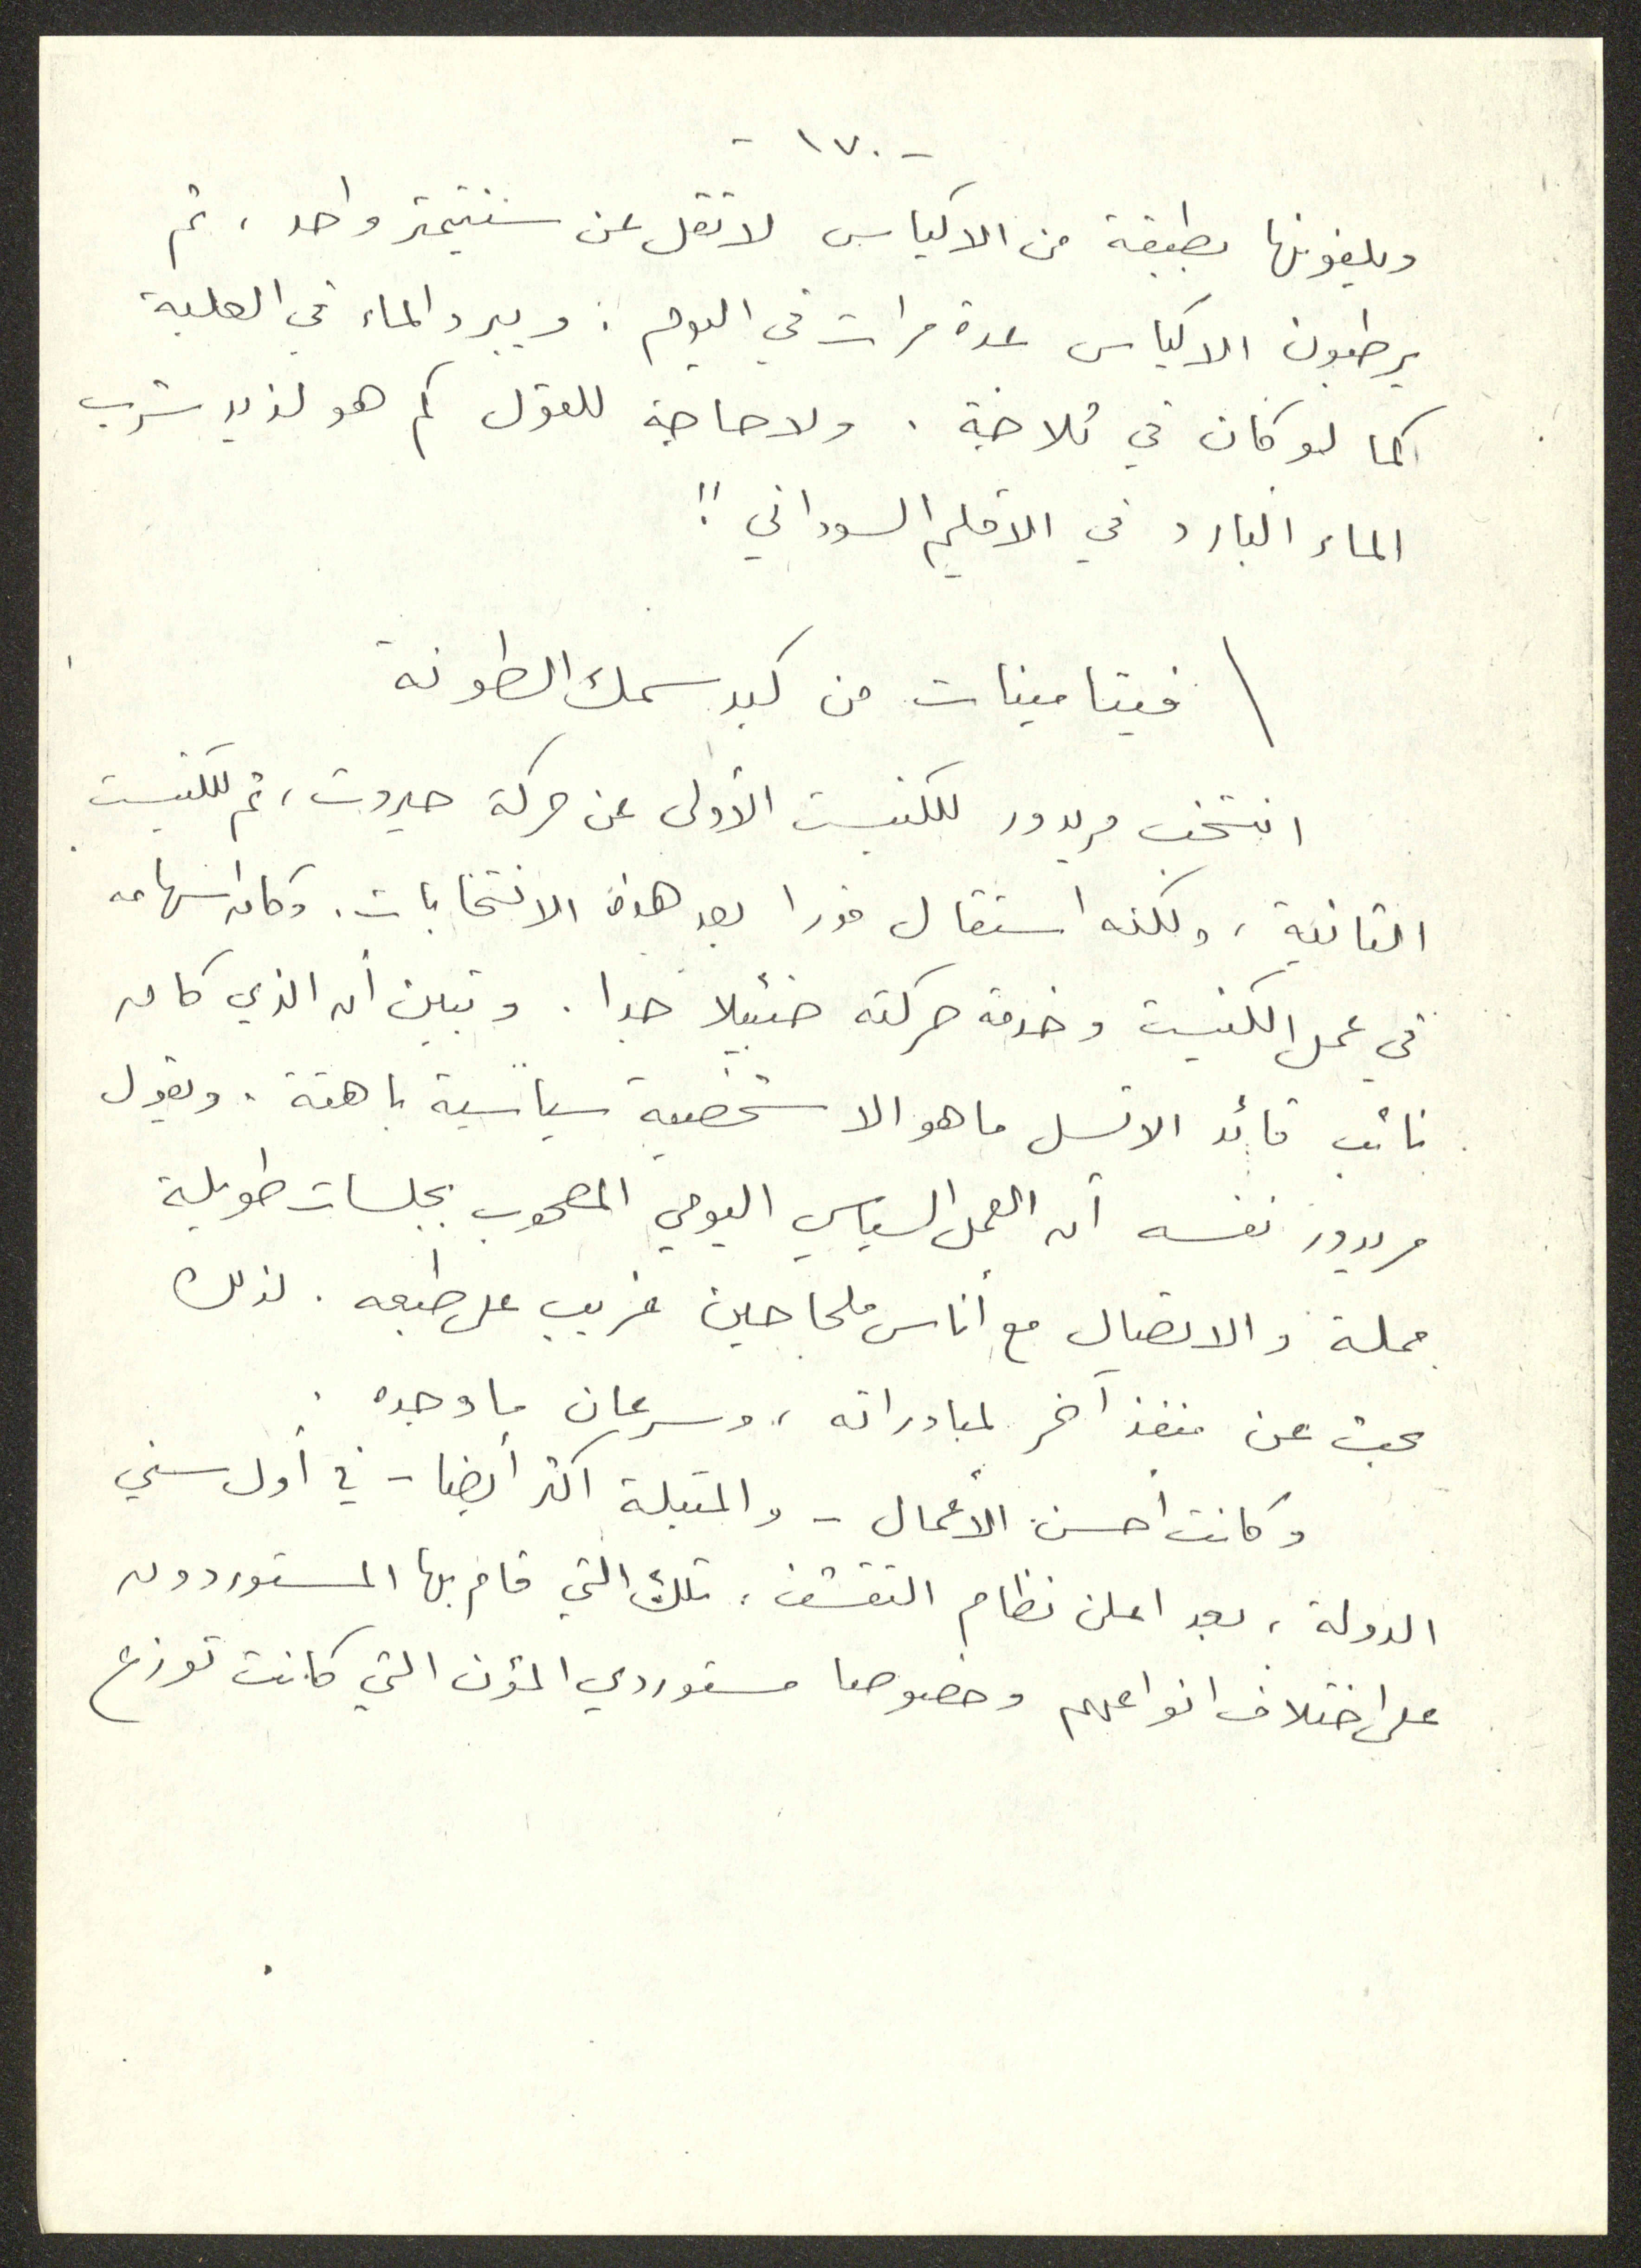 - ١٧٠ -
ويلفونها بطبقة من الاكياس لا تقل عن سنتيمتر واحد ، ثم
يرطبون الاكياس عدة مرات في اليوم : ويبرد الماء في العلبة
كما لو كان في ثلاجة . ولا حاجة للقول كم هو لذيد شرب
الماء البارد في الاقليم السوداني "!
\ فيتامينات من كبد سمك الطونة
انتخب مريدور للكنيست الأولى عن حركة حيروت ، ثم للكنيست
الثانية ، ولكنه استقال فورا بعد هذه الانتخابات . وكان اسهامه
في عمل الكنيست وخدمة حركته ضئيلا جدا . وتبين أن الذي كان
نائب قائد الاتسل ما هو الا شخصية سياسية باهتة . ويقول
مريدور نفسه أن العمل السياسي اليومي المصحوب بجلسات طويلة
مملة والاتصال مع أناس ملحاحين غريب على طبعه . لذلك
بحث عن منفذ آخر لمبادراته ، وسرعان ما وجده .
وكانت أحسن الأعمال - والمتبلة اكثر أيضا - في أول سني
الدولة ، بعد اعلن نظام التقشف ، تلك التي قام بها المستوردون
على اختلاف انواعهم وخصوصا مستوردي المؤن التي كانت توزع